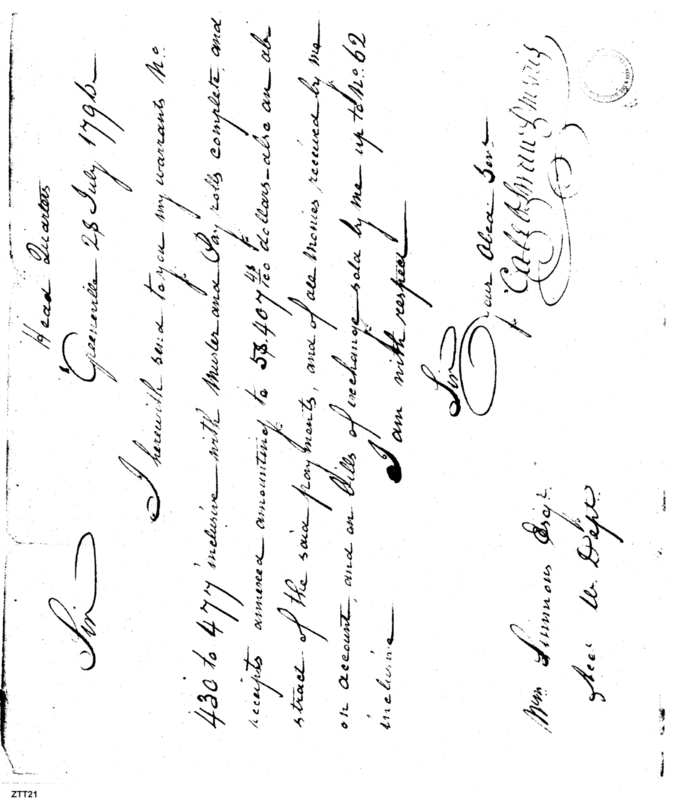 Head Quarters
Greeneville 28 July 1795
Sir
I herewith send to you my warrants No.
430 to 477 inclusive with Muster and Pay rolls complete, and
receipts annexed amounting to 407 43/100 dollars – also an ab
stract of the said payments, and of all Monies received by me
on account, and on Bills of exchange sold by me up to No. 62
inclusive
I am with respect
Sir
Your Obed. Serv.
Caleb Swan P. M.
Wm Simmons Esqr.
Acct. W. Dept.
ZTT21